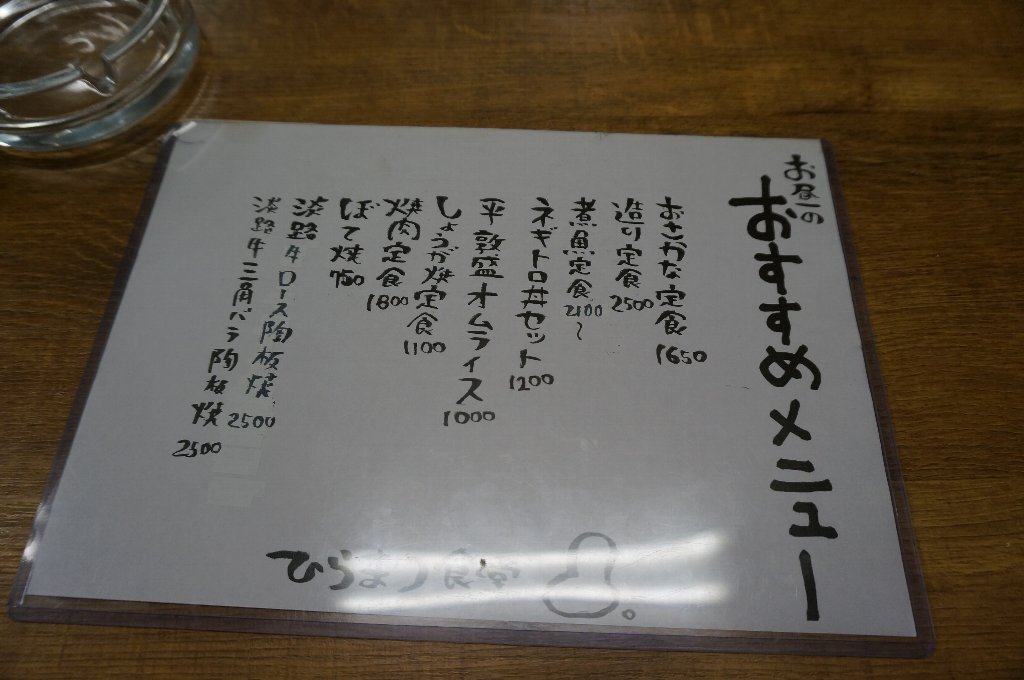 お昼の
おすすめメニュー
おさかな定食 1650
造り定食 2500
煮魚定食 2100〜
ネギトロ丼セット 1200
平敦盛オムライス 1000
しょうが焼定食 1100
焼肉定食 1800
ぼて焼 750
淡路牛ロース陶板焼 2500
淡路牛三角バラ陶板焼 2500
ひらまつ食堂